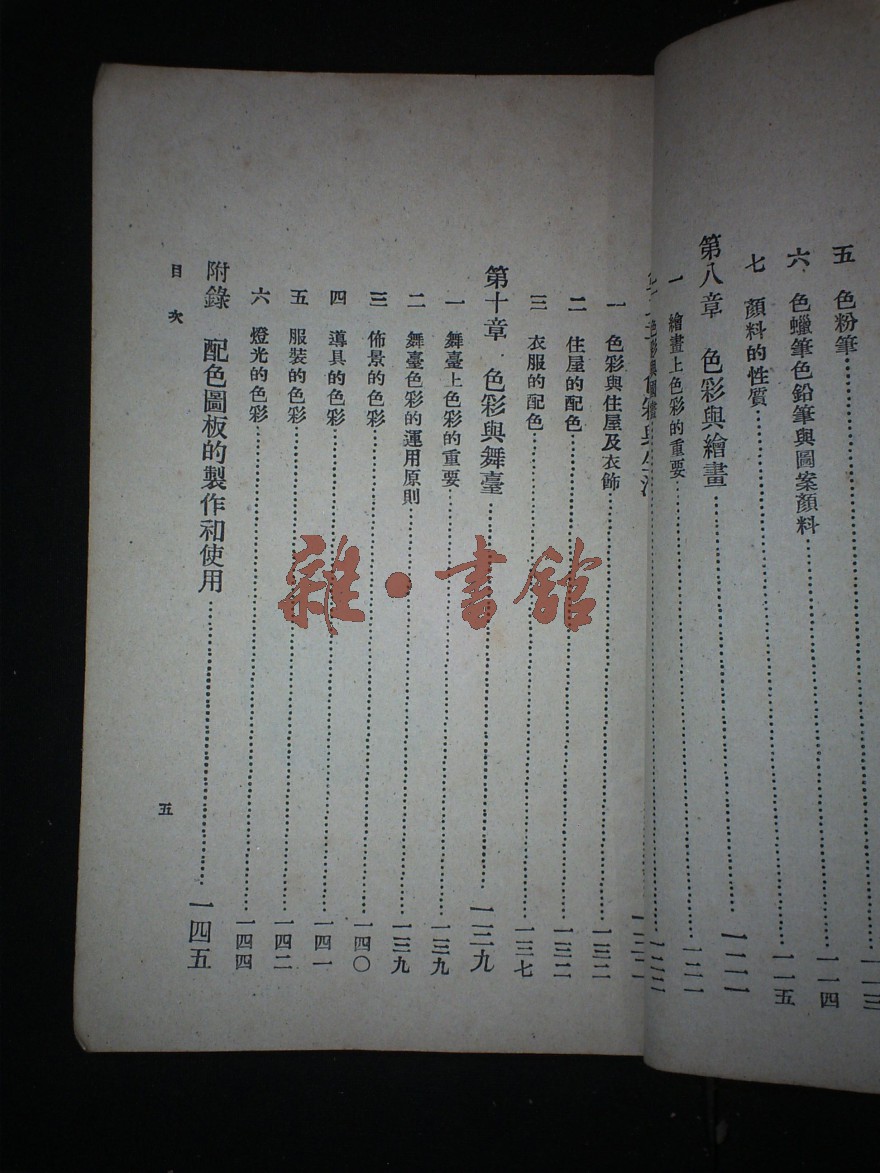 五 色粉筆……一一三
六 色蠟筆色鉛筆與圖案顏料……一一四
七 顏料的性質……一一五
第八章 色彩與繪畫……一二一
一 繪畫上色彩的重要……一二一
一 色彩與住屋及衣飾……一三二
二 住屋的配色……一三二
三 衣服的配色……一三七
第十章 色彩與舞臺……一三九
一 舞臺上色彩的重要……一三九
二 舞臺色彩的運用原則……一三九
三 佈景的色彩……一四〇
四 導具的色彩……一四一
五 服裝的色彩……一四二
六 燈光的色彩……一四四
附錄 配色圖板的製作和使用……一四五
目次
五
雜·書館